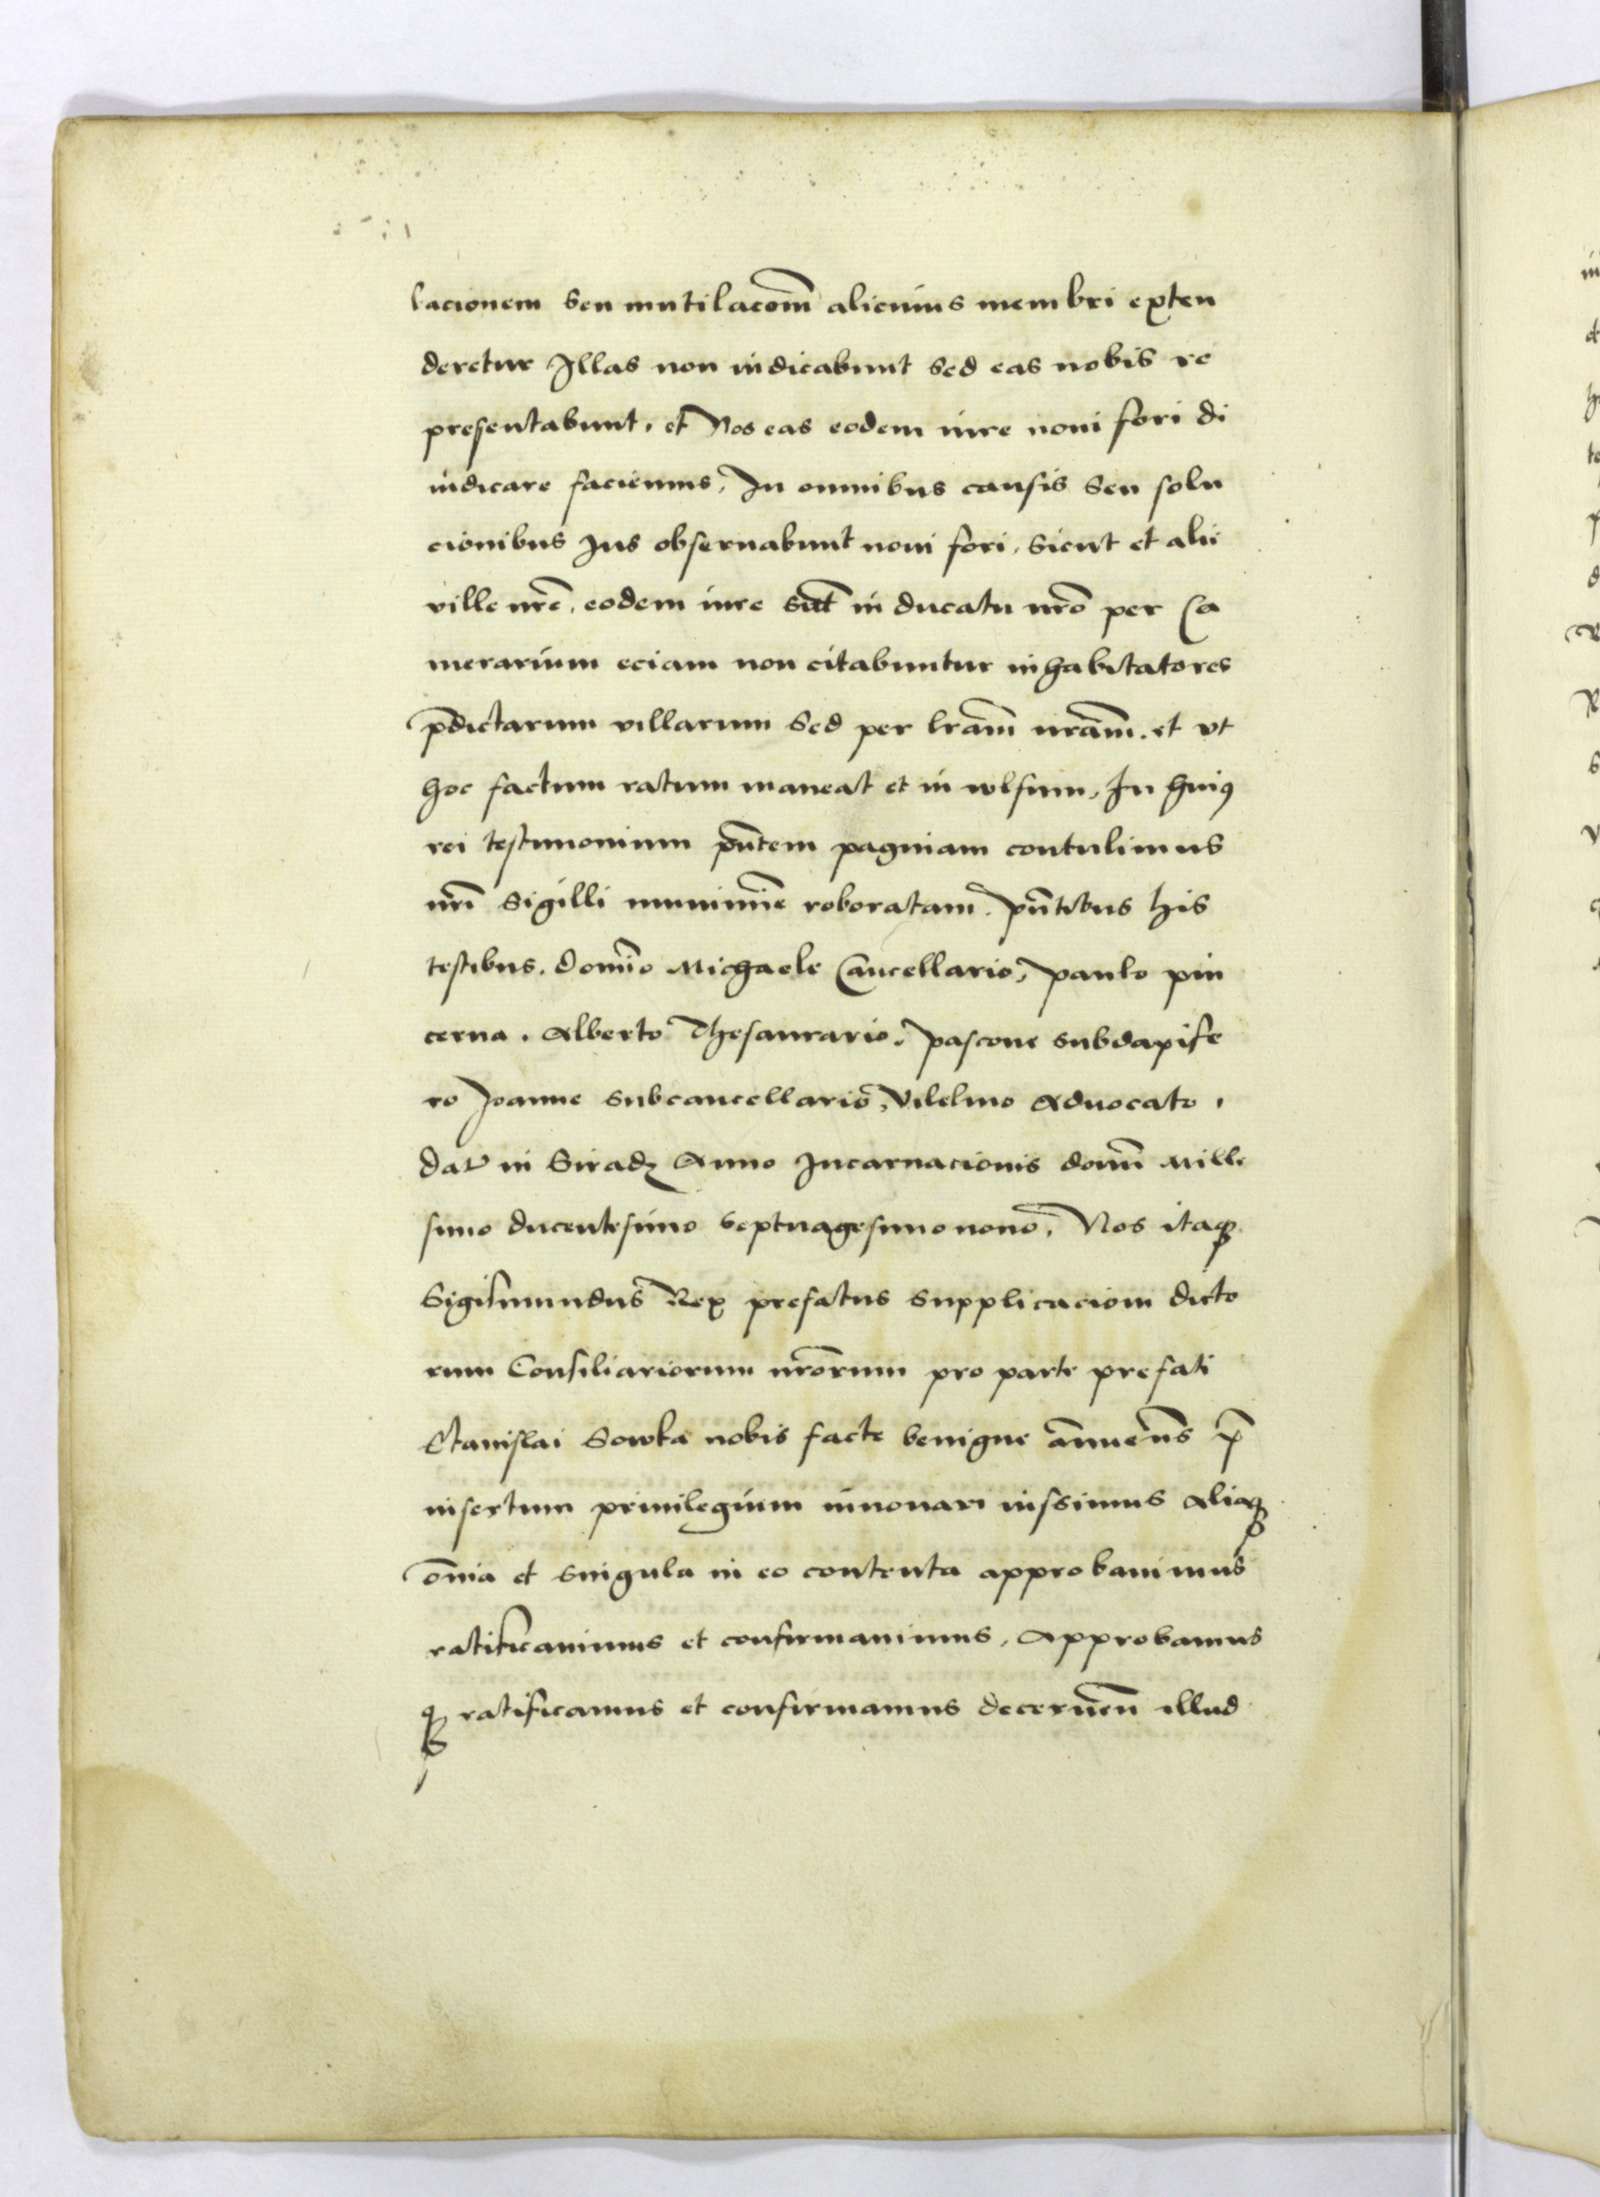 lacionem seu mutilacom̄ alicuius membri exten
deretur Illas non iudicabunt sed eas nobis re
presentabunt, et Nos eas eodem iure noui fori di
iudicare faciemus, In omnibus causis seu solu
cionibus Jus obseruabunt noui fori, sicut et alii
ville nrē, eodem iure sūt in ducatu nrō per Ca
merarium eciam non citabuntur inhabitatores
p̄dictarum villarum sed per lrām nrām. et vt
hoc factum ratum maneat et in wlsum, In huiꝰ
rei testimonium pn̄tem paginam contulimus
nrī sigilli munimīe roboratam. pn̄tibus his
testibus. domīo Michaele Cancellario, paulo pin
cerna. Alberto Thesaurario, pascone subdapife
ro Joanne subcancellario, Vilelmo Aduocato,
dat' in Siradz Anno Incarnacionis domī Mille
simo ducentesimo septuagesimo nono, Nos itaqꝫ
Sigismundus Rex prefatus supplicacioni dicto
rum Consiliariorum nrōrum pro parte prefati
Stanislai Sowka nobis facte benigne ānuen̄s p̄
insertum priuilegium innouari iussimus Aliaqꝫ
om̄ia et singula in eo contenta approbauimus
ratificauimus et confirmauimus, Approbamus
qꝫ ratificamus et confirmamus decernen̄ illud